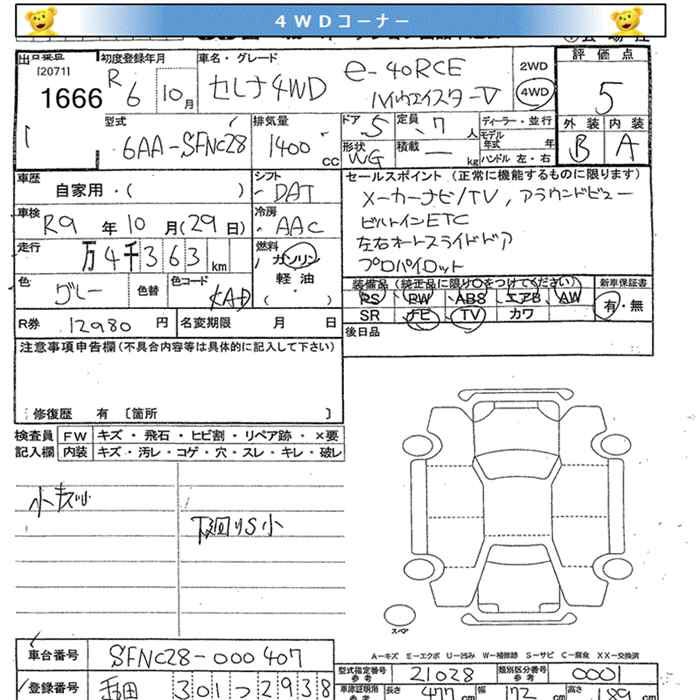 4WDコーナー
出 初度登録年月 車名・グレード 2WD 評価点
[2071] R6年10月 セレナ4WD e-40RCE ハイウェイスターV 4WD 5
1666
型式 排気量 ドア 5 定員 7人 ディーラー・並行 外装 内装
6AA-SFNC28 1400cc 形状 WG 積載 ー kg モデル年式 年 B A
ハンドル 左・右
車歴 シフト セールスポイント (正常に機能するものに限ります)
自家用・( ) DAT メーカーナビ/TV, アラウンドビュー
車検 冷房 ビルトインETC
R9年10月(29日) AAC 左右オートスライドドア
走行 燃料 プロパイロット
万4千363km ガソリン 軽油 ・( )
色 グレー 色替 色コード KAD
装備品(純正品に限り○をつけてください) 新車保証書
PS PW ABS エアB AW 有・無
SR ナビ TV カワ
R券 12980円 名変期限 月 日 後日品
注意事項申告欄(不具合内容等は具体的に記入して下さい)
修復歴 有 〔箇所 〕
検査員 FW キズ・飛石・ヒビ割・リペア跡・×要
記入欄 内装 キズ・汚レ・コゲ・穴・スレ・キレ・破レ
小キズ
下廻りS小
スペア
A−キズ E−エクボ U−凹み W−補修跡 S−サビ C−腐食 XX−交換済
車台番号 SFNC28-000407
型式指定番号 参考 21028 類別区分番号 参考 0001
登録番号 301 2938
車庫証明用 参考 長さ 477cm 幅 172cm 高さ 185cm